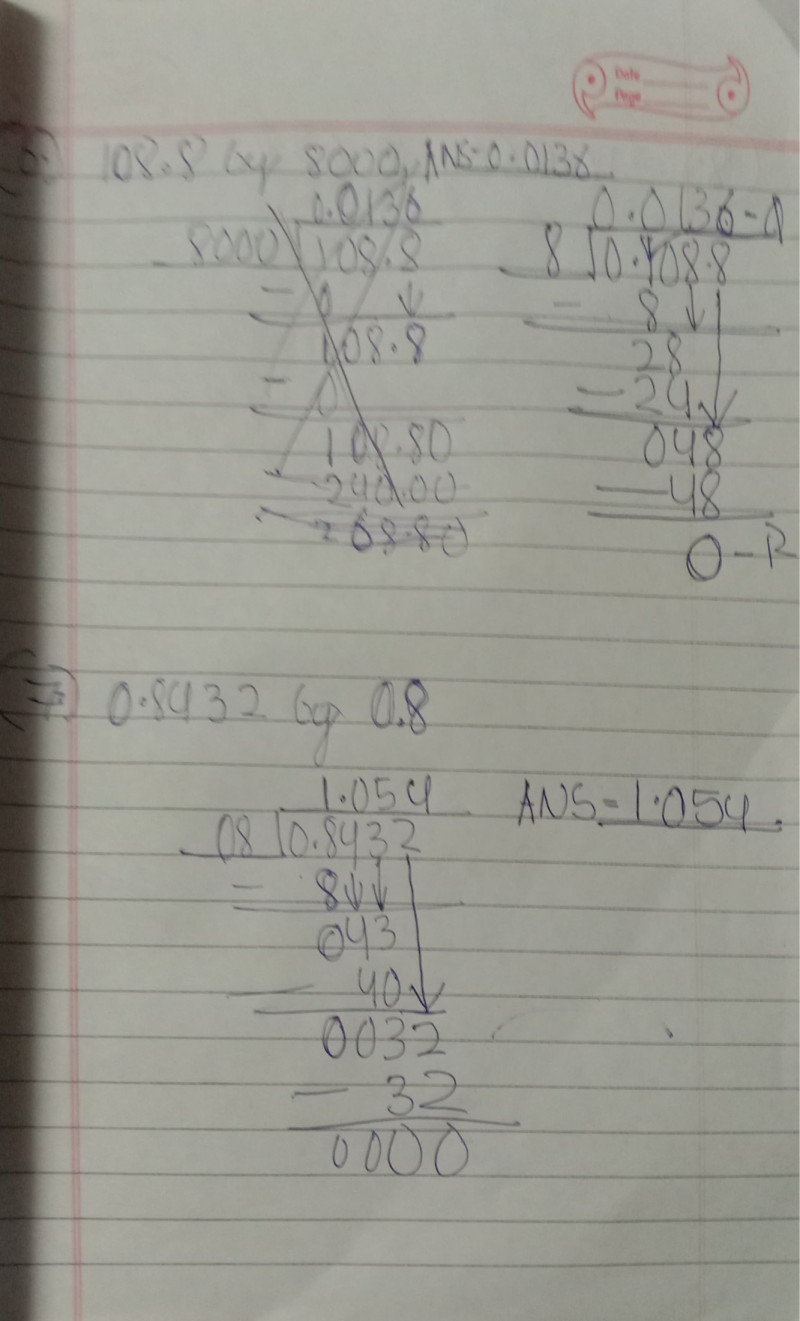 Date
Page
108.8 by 8000, ANS-0.0136
0.0136
8000 108.8
- 0
108.8
- 0
108.80
- 240.00
268.80
0.0136-Q
8 0.108.8
- 8
28
- 24
048
- 48
0-R
0.8432 by 0.8
1.054
08 0.8432
- 8
043
- 40
0032
- 32
0000
ANS=1.054.